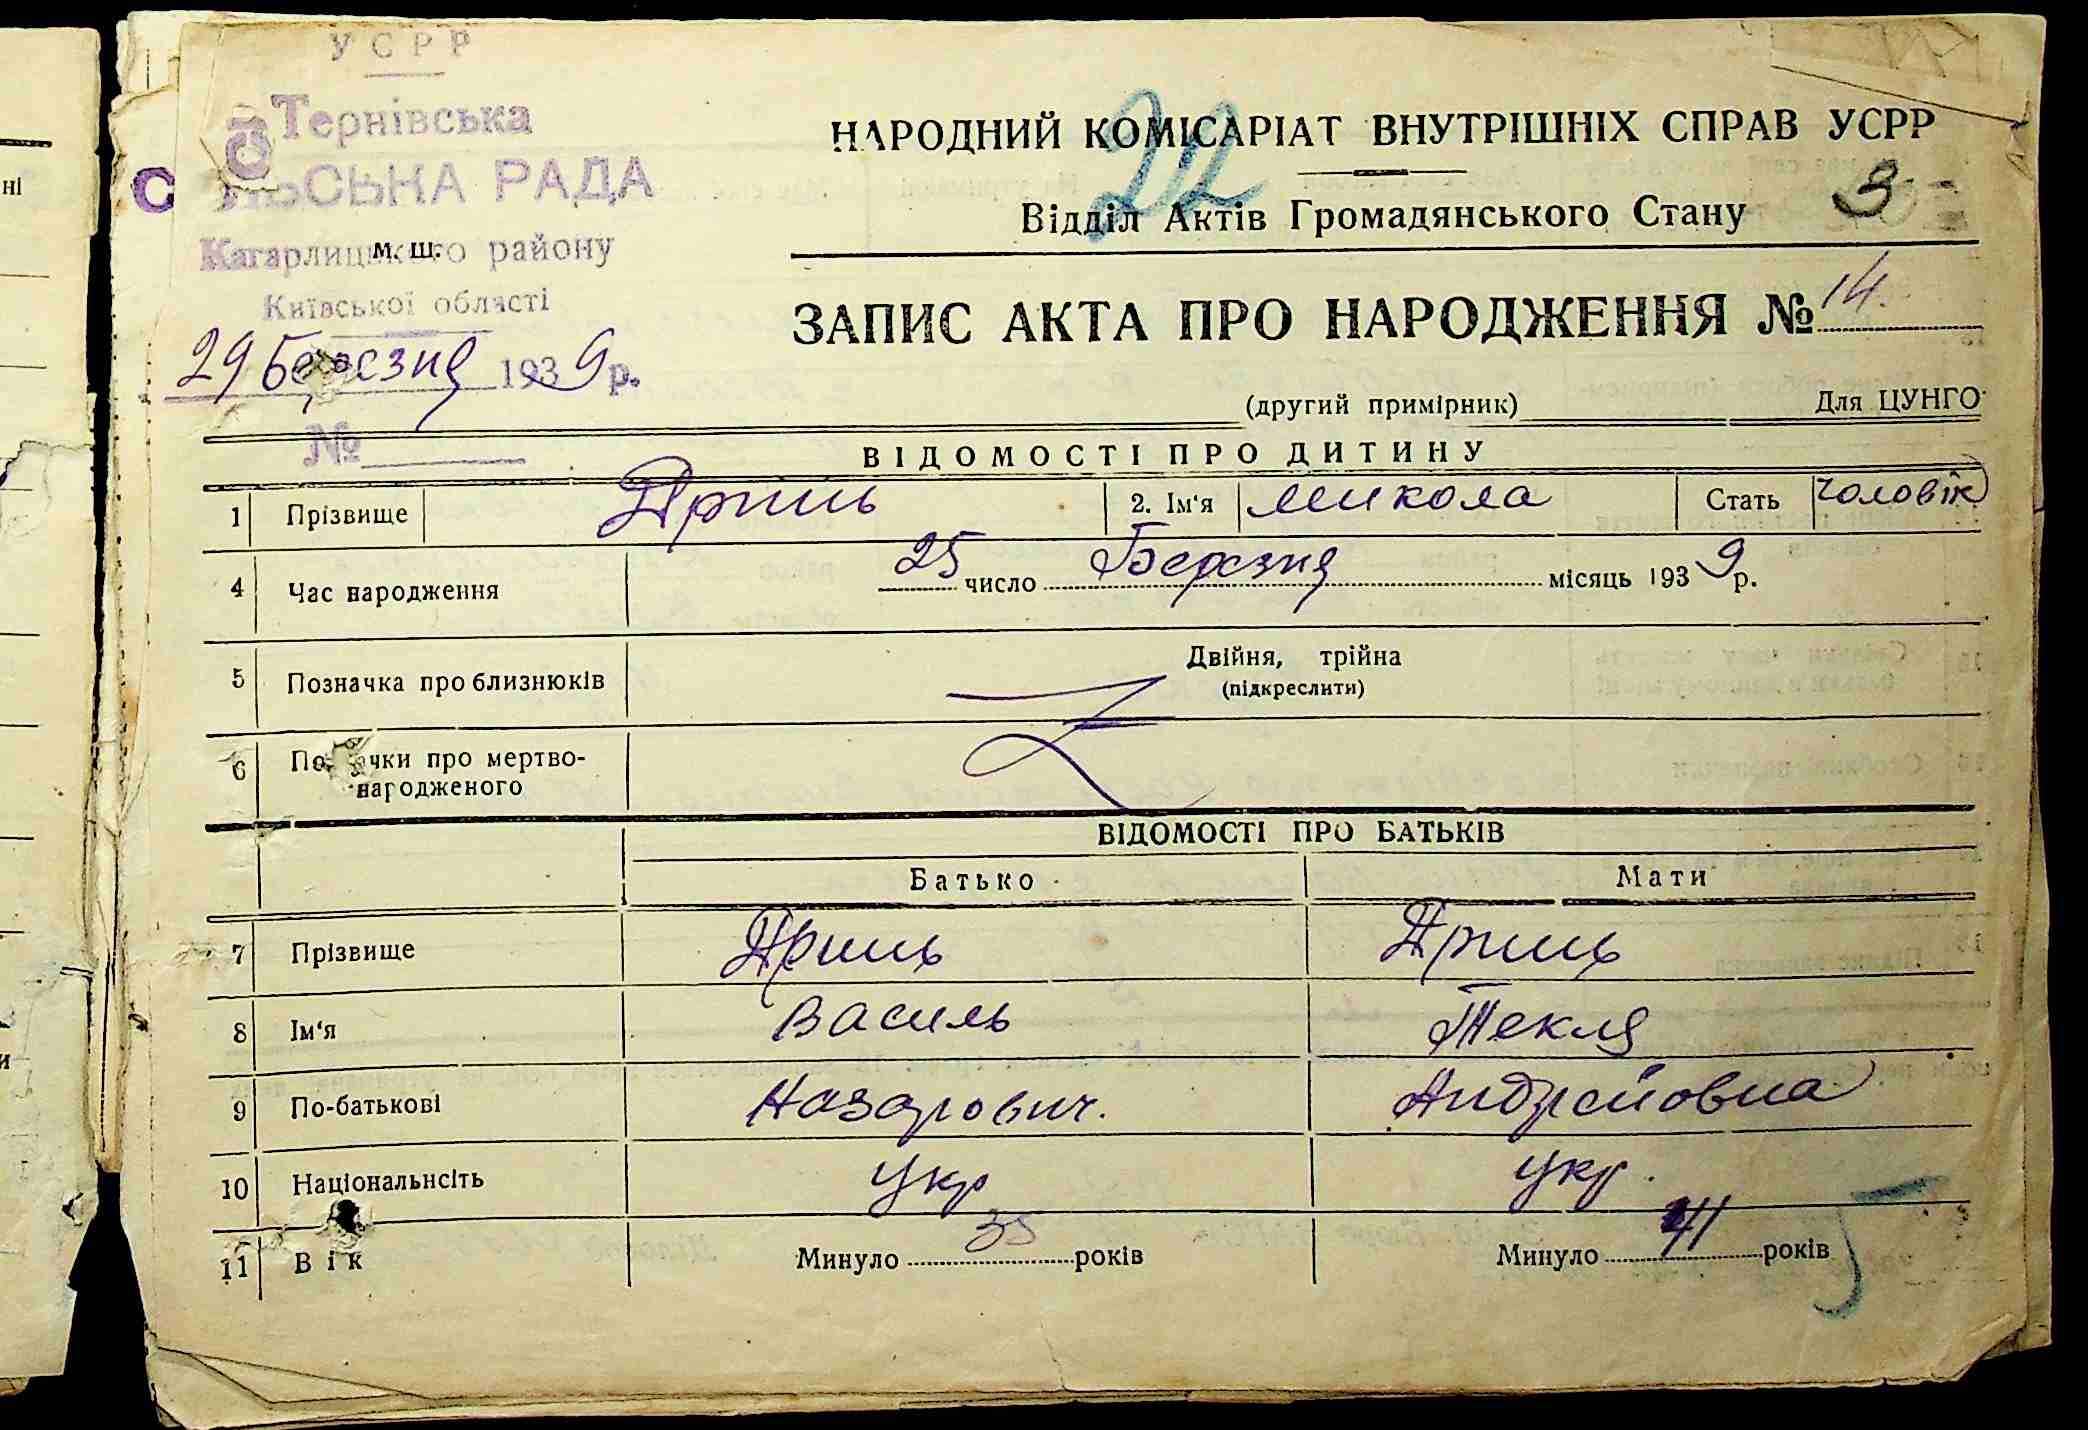 УСРР
Тернівська
СІЛЬСЬКА РАДА
м. ш.
Кагарлицького району
Київської області
29 Березня 1939 р.
№
22
НАРОДНИЙ КОМІСАРІАТ ВНУТРІШНІХ СПРАВ УСРР
Відділ Актів Громадянського Стану
3
ЗАПИС АКТА ПРО НАРОДЖЕННЯ № 14.
(другий примірник) Для ЦУНГО
ВІДОМОСТІ ПРО ДИТИНУ
1 Прізвище Приль 2. Ім'я Микола Стать чоловік
4 Час народження 25 число Березня місяць 1939 р.
5 Позначка про близнюків Двійня, трійна
(підкреслити)
6 Позначки про мертво-
народженого
ВІДОМОСТІ ПРО БАТЬКІВ
Батько Мати
7 Прізвище Приль Приль
8 Ім'я Василь Текля
9 По-батькові Назарович. Андрейовна
10 Національнсіть укр укр.
11 Вік Минуло 35 років Минуло 41 років
ні
и